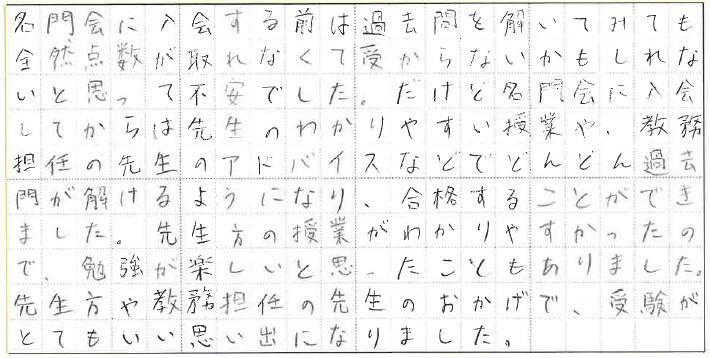 名門会に入会する前は過去問を解いてみても
全然点数が取れなくて受からないかもしれな
いと思って不安でした。だけど名門会に入会
してからは先生のわかりやすい授業や、教務
担任の先生のアドバイスなどでどんどん過去
問が解けるようになり、合格することができ
ました。先生方の授業がわかりやすかったの
で、勉強が楽しいと思ったこともありました。
先生方や教務担任の先生のおかげで、受験が
とてもいい思い出になりました。